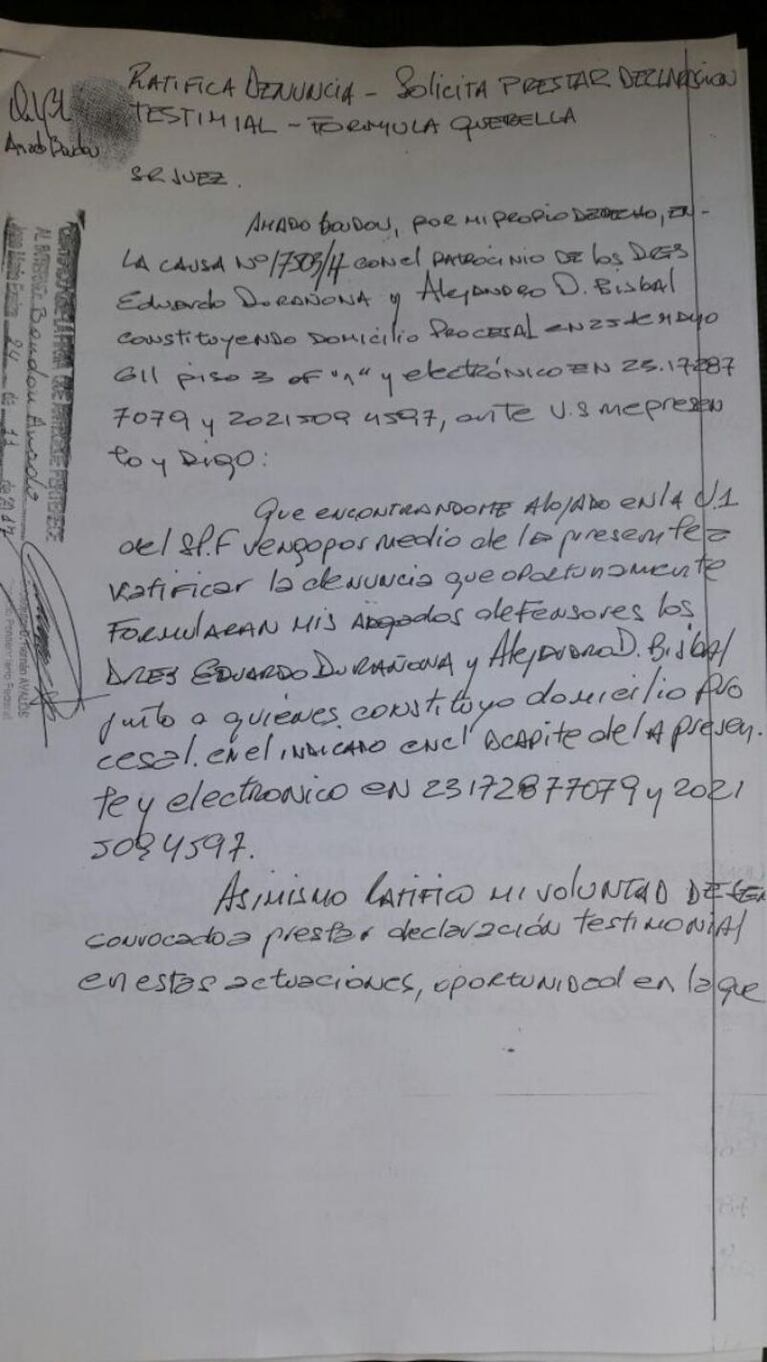 RATIFICA DENUNCIA - SOLICITA PRESTAR DECLARACION
TESTIMIAL - FORMULA QUERELLA
Amado Boudou
SR JUEZ.
AMADO BOUDOU, POR MI PROPIO DERECHO, EN-
LA CAUSA Nº 17503/17 CON el PATROCINIO DE los DRES
Eduardo DURAÑONA y Alejandro D. Bisbal
CONSTITUYENDO DOMICILIO PROCESAL EN 25 de MAYO
611 piso 3 of "1" y electrónico EN 23.17287
7079 y 2021509 4597, ante U.S me presen
to y DIGO:
Que ENCONTRANDOME AlOJADO EN LA U1
del SP.F vengo por medio de la presente a
Ratificar la denuncia que oportunamente
FORMULARAN MIS Abogados defensores los
DRES EDUARDO DURAÑONA y AlejANDRO D. Bisbal
junto a quiénes constituyo domicilio pro
cesal. en el INDICADO en el acapite de lA presen.
te y electronico en 23172877079 y 2021
5094597.
ASIMISMO RATIFICO MI VOLUNTAD DE SER
convocado a prestar declaración TESTIMONIAl
en estas actuaciones, oportunidad en la que
CERTIFICO QUE LA FIRMA QUE ANTECEDE PERTENECE
AL INTERNO: Boudou Amado
24 de 11 de 2017
Hernán AVALOS
Penitenciario Federal